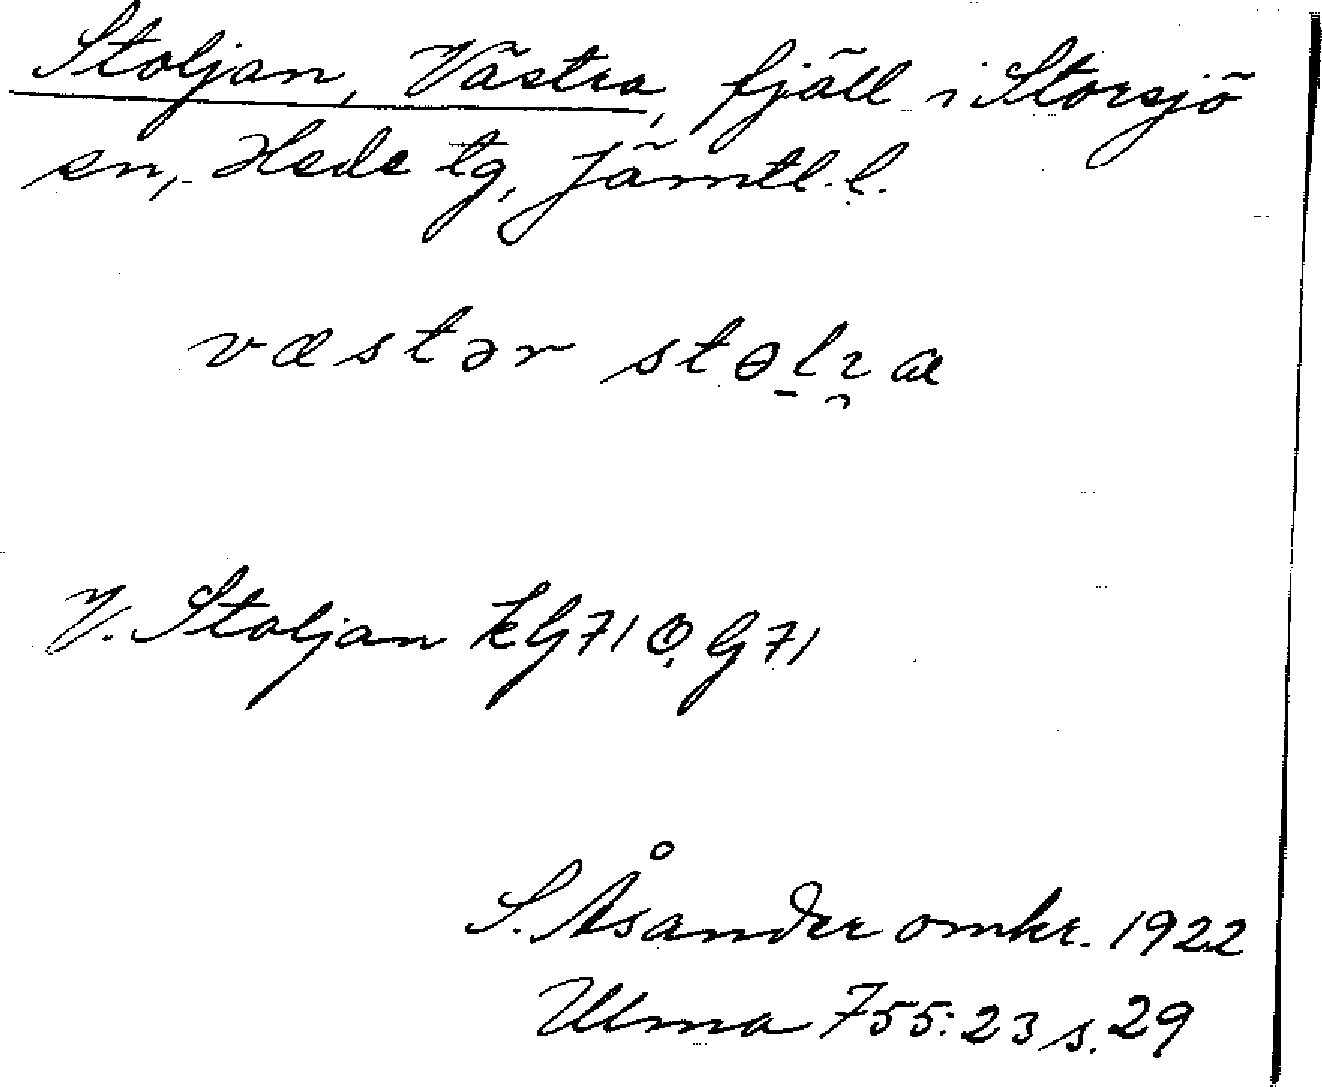 Stoljan, Västra, fjäll i Storsjö
sn, Hede tg, Jämtl. l.
væstər
V. Stoljan k G71 Ö. G71
S. Åsander omkr. 1922
Ulma 755:23 s. 29